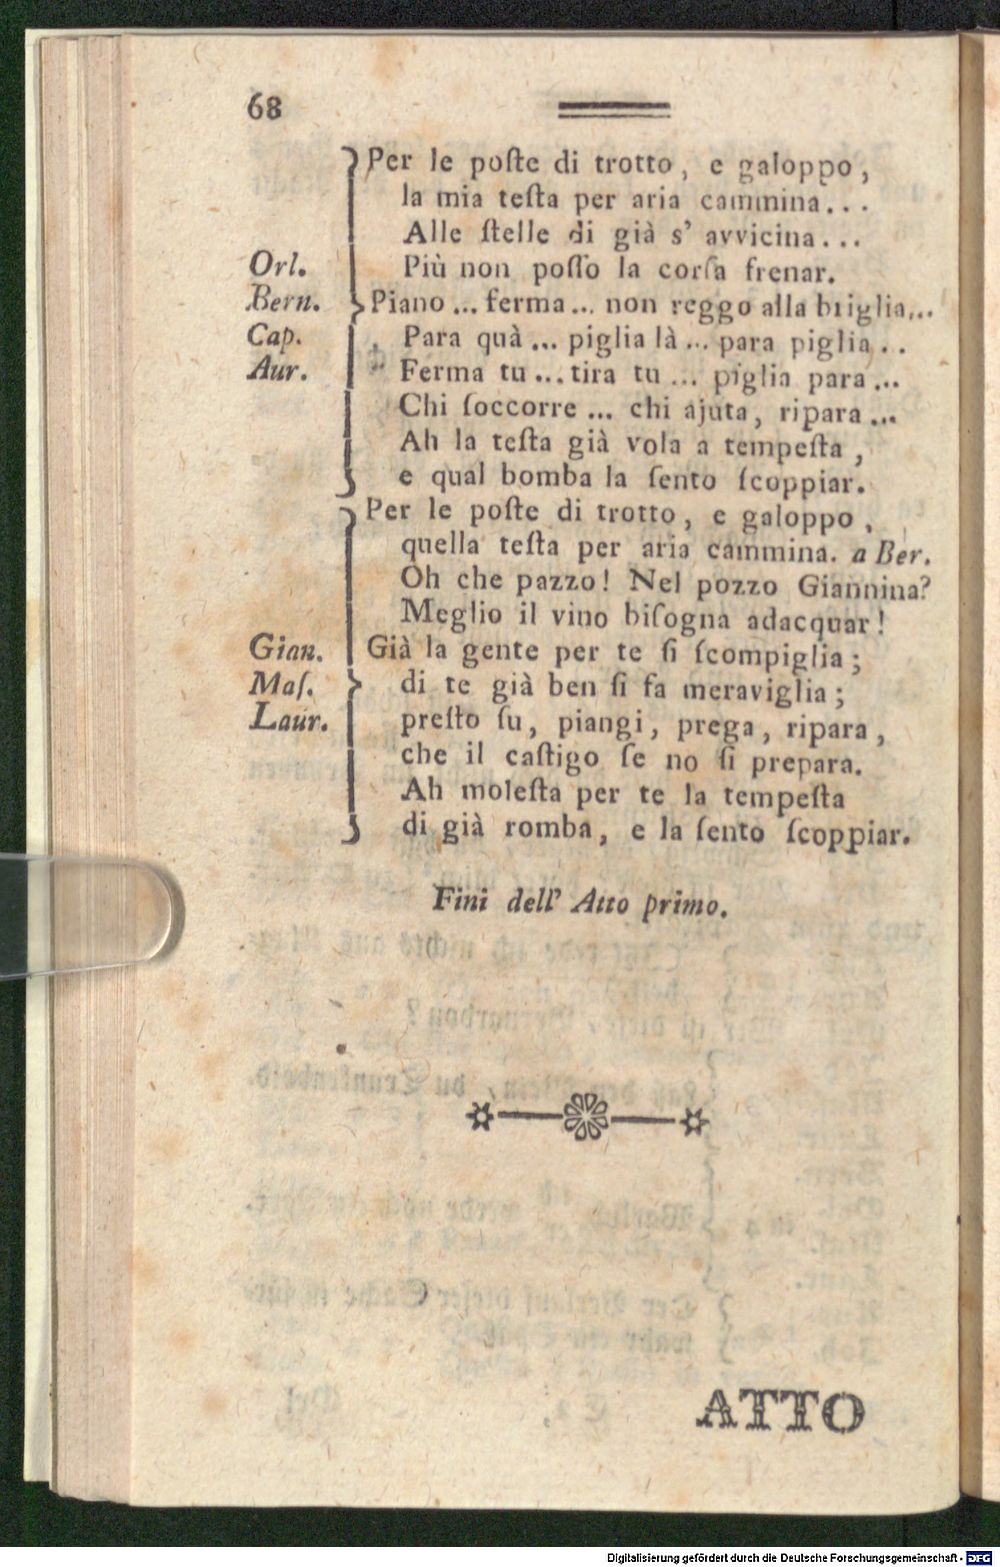 68
Per le poſte di trotto, e galoppo,
la mia teſta per aria cammina...
Alle ſtelle di già s' avvicina...
Orl. Più non poſſo la corſa frenar.
Bern. Piano ... ferma ... non reggo alla briglia...
Cap. Para quà ... piglia là ... para piglia ..
Aur. Ferma tu ... tira tu ... piglia para ...
Chi ſoccorre ... chi ajuta, ripara ...
Ah la teſta già vola a tempeſta,
e qual bomba la ſento ſcoppiar.
Per le poſte di trotto, e galoppo,
quella teſta per aria cammina. a Ber.
Oh che pazzo! Nel pozzo Giannina?
Meglio il vino biſogna adacquar!
Gian. Già la gente per te ſi ſcompiglia;
Maſ. di te già ben ſi fa meraviglia;
Laur. preſto ſu, piangi, prega, ripara,
che il caſtigo ſe no ſi prepara.
Ah moleſta per te la tempeſta
di già romba, e la ſento ſcoppiar.
Fini dell' Atto primo.
ATTO
Digitalisierung gefördert durch die Deutsche Forschungsgemeinschaft - DFG